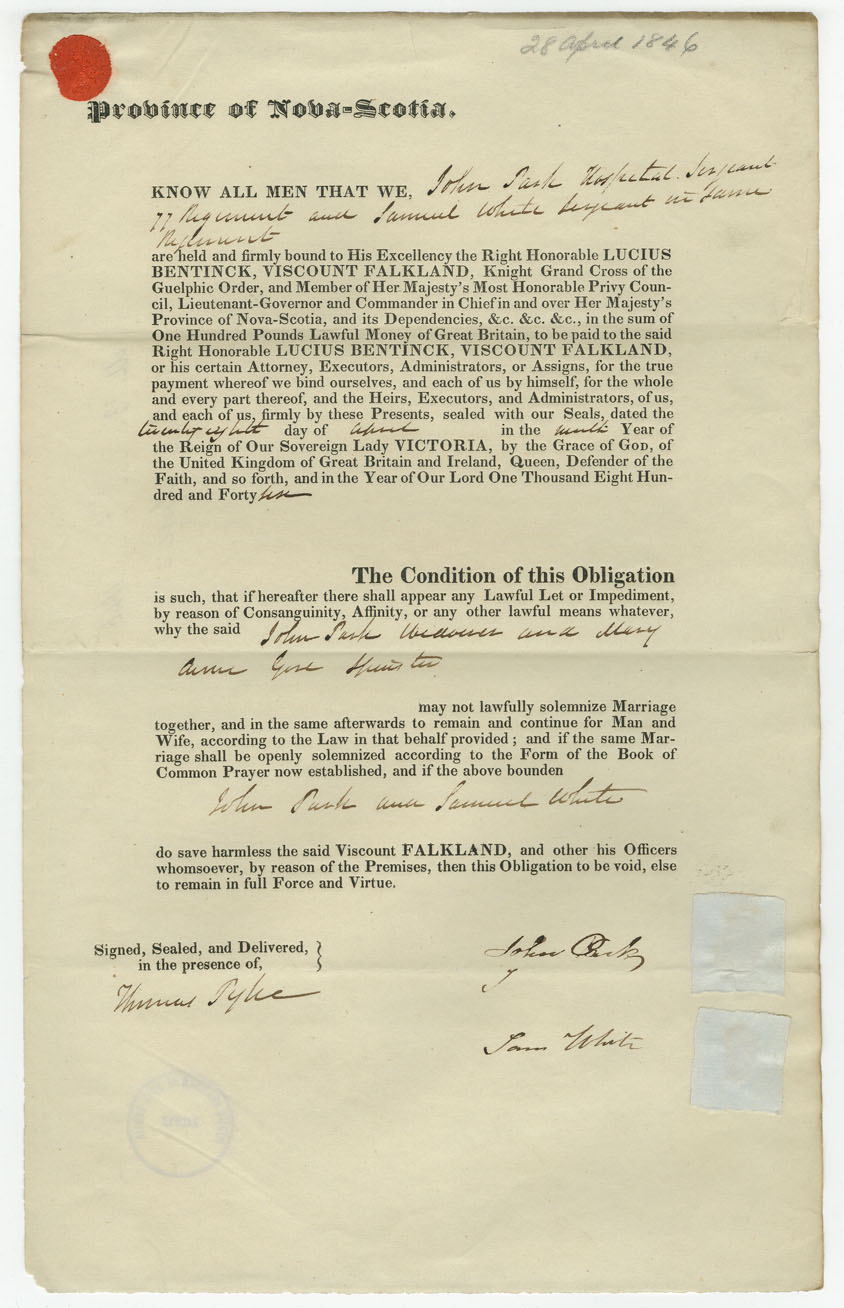 28 April 1846
Province of Nova-Scotia.
KNOW ALL MEN THAT WE, John Park Hospital Sergeant
77 Regiment and Samuel White Sergeant in Same
Regiment
are held and firmly bound to His Excellency the Right Honorable LUCIUS
BENTINCK, VISCOUNT FALKLAND, Knight Grand Cross of the
Guelphic Order, and Member of Her Majesty's Most Honorable Privy Coun-
cil, Lieutenant-Governor and Commander in Chief in and over Her Majesty's
Province of Nova-Scotia, and its Dependencies, &c. &c. &c., in the sum of
One Hundred Pounds Lawful Money of Great Britain, to be paid to the said
Right Honorable LUCIUS BENTINCK, VISCOUNT FALKLAND,
or his certain Attorney, Executors, Administrators, or Assigns, for the true
payment whereof we bind ourselves, and each of us by himself, for the whole
and every part thereof, and the Heirs, Executors, and Administrators, of us,
and each of us, firmly by these Presents, sealed with our Seals, dated the
twenty eighth day of April in the ninth Year of
the Reign of Our Sovereign Lady VICTORIA, by the Grace of GOD, of
the United Kingdom of Great Britain and Ireland, Queen, Defender of the
Faith, and so forth, and in the Year of Our Lord One Thousand Eight Hun-
dred and Forty six
The Condition of this Obligation
is such, that if hereafter there shall appear any Lawful Let or Impediment,
by reason of Consanguinity, Affinity, or any other lawful means whatever,
why the said John Park Widower and Mary
Anne Gore Spinster
may not lawfully solemnize Marriage
together, and in the same afterwards to remain and continue for Man and
Wife, according to the Law in that behalf provided; and if the same Mar-
riage shall be openly solemnized according to the Form of the Book of
Common Prayer now established, and if the above bounden
John Park and Samuel White
do save harmless the said Viscount FALKLAND, and other his Officers
whomsoever, by reason of the Premises, then this Obligation to be void, else
to remain in full Force and Virtue.
Signed, Sealed, and Delivered,
in the presence of,
Thomas Pyke
John Park
Sam White